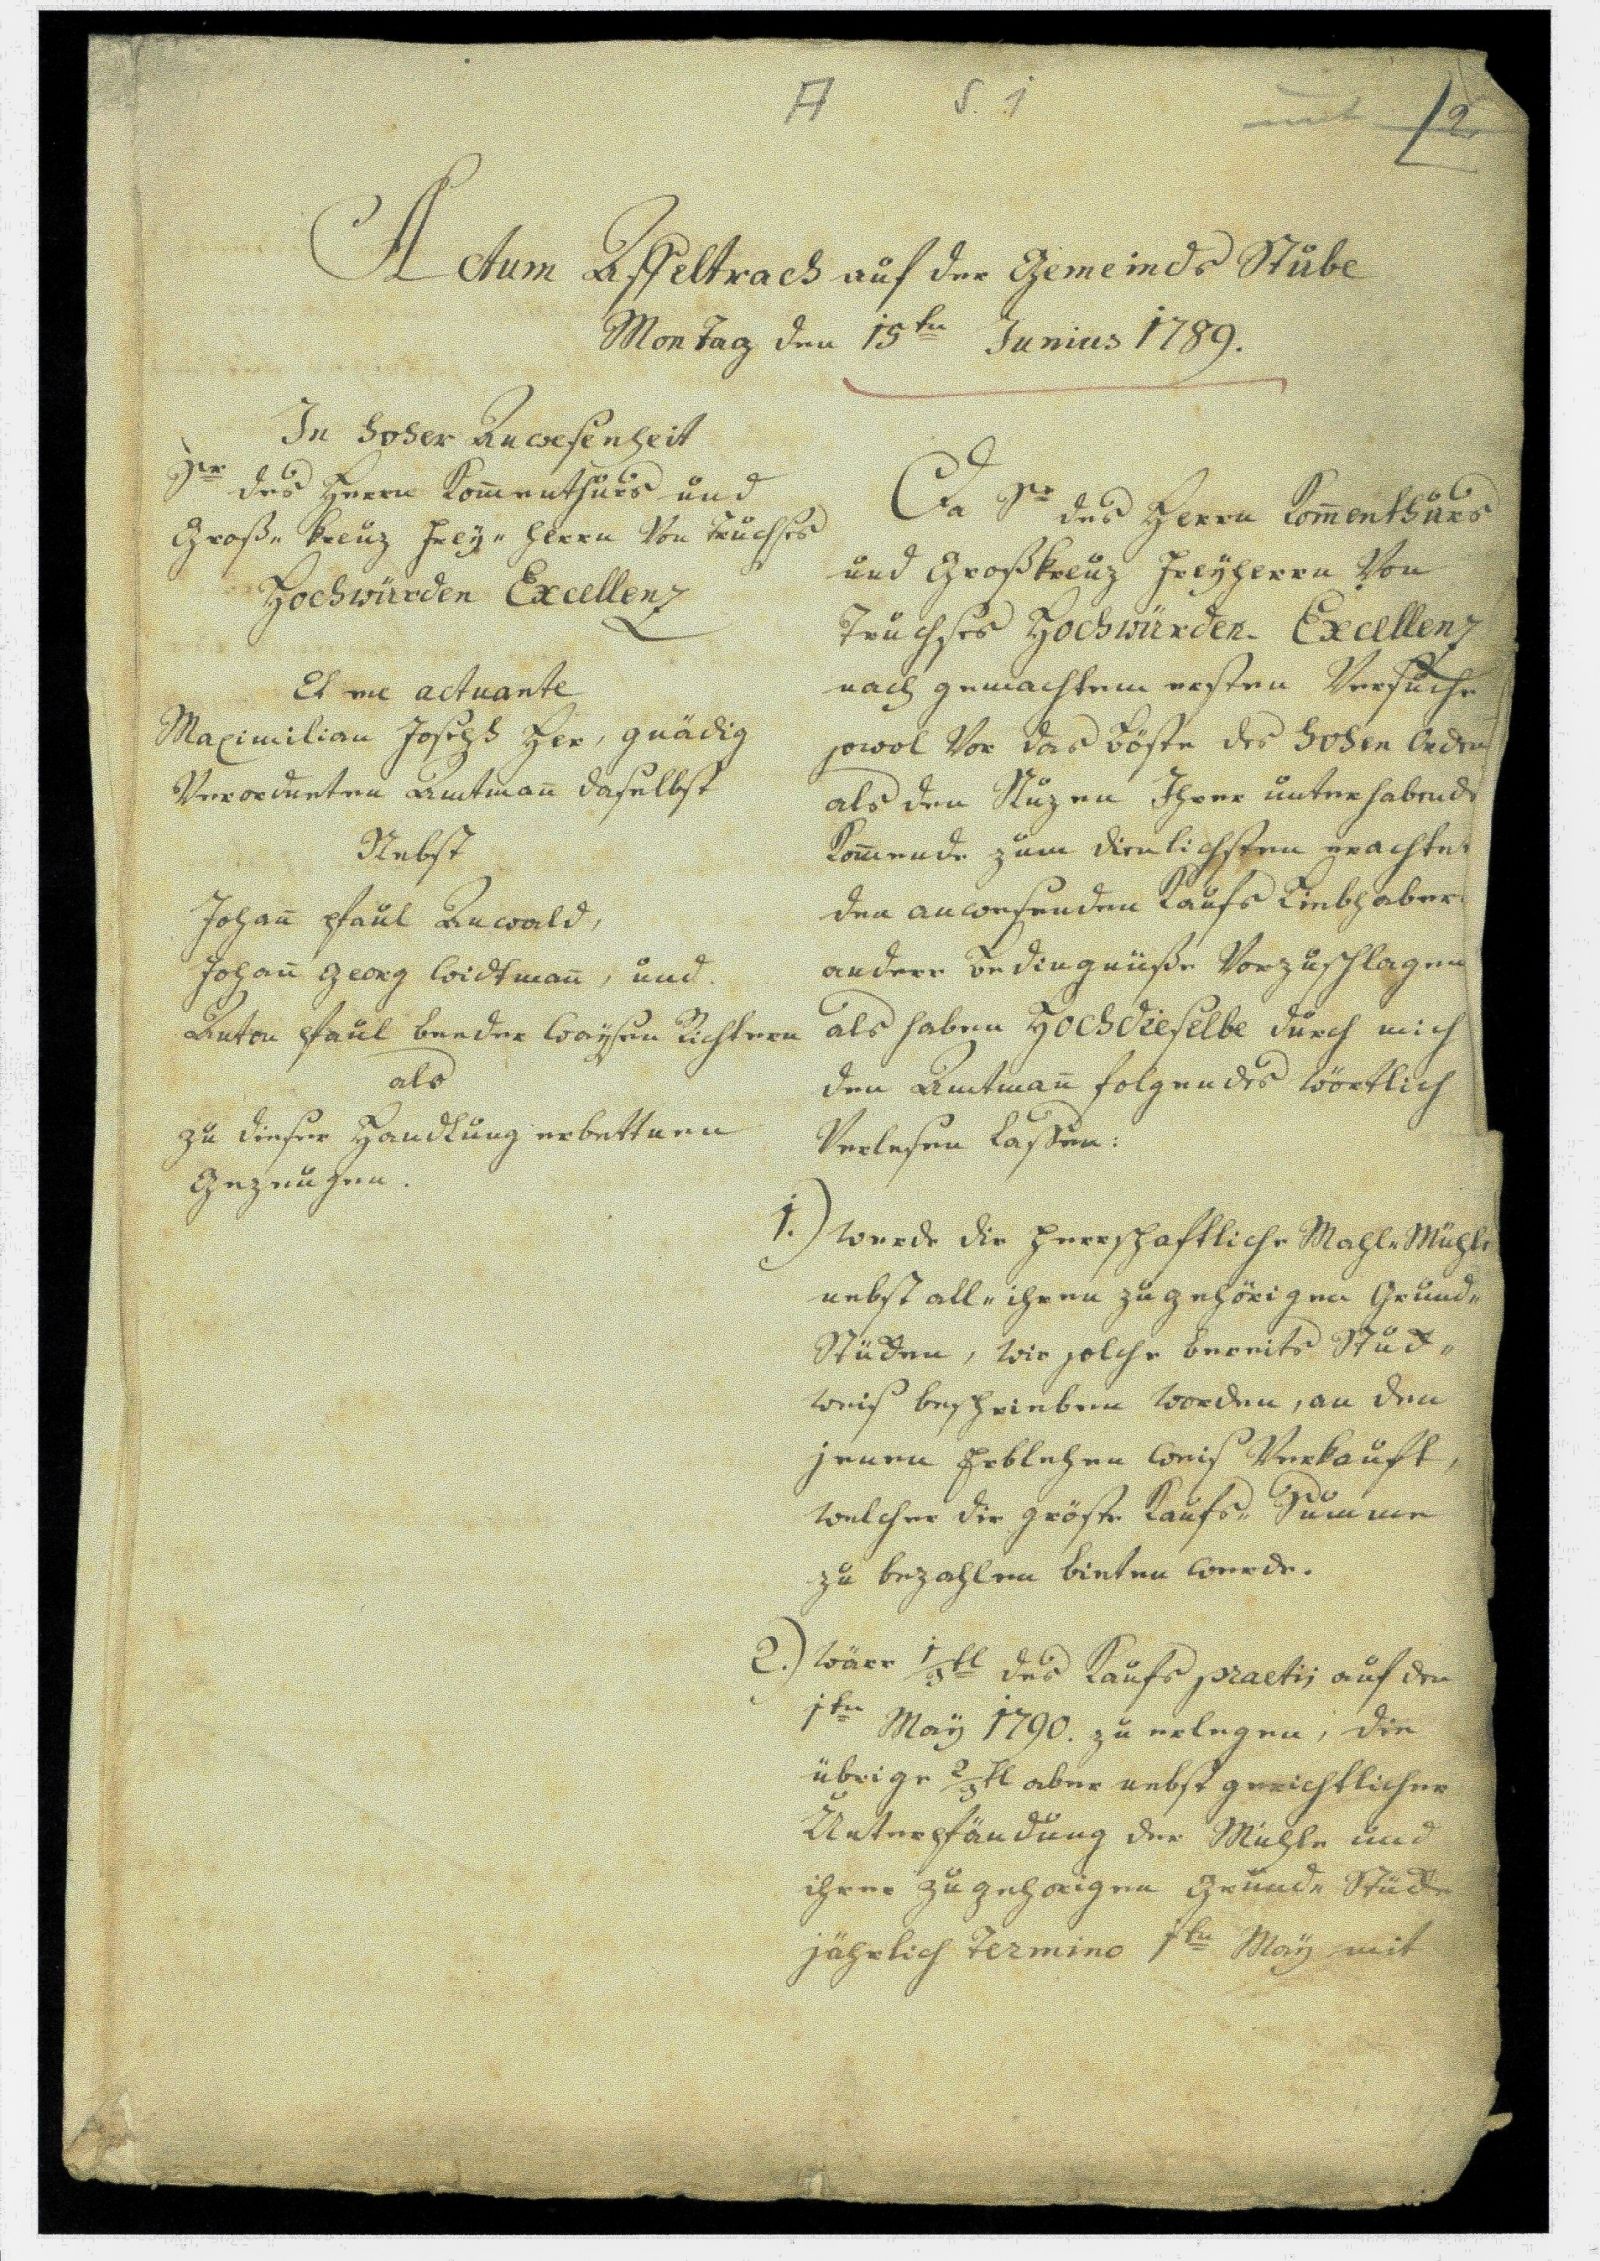 A S. 1
2
Actum Affeltrach auf der Gemeinds Stube
Montag den 15tn Junius 1789.
In hoher Anwesenheit
Sr des Herrn Kommenthurs und
Groß„ Kreuz Frey„ herrn Von Truchses
Hochwürden Excellenz
Et me actuante
Maximilian Joseph Her, gnädig
Verordneten Amtmañ daselbst
Nebst
Johañ Paul Anwald,
Johañ Georg Widtmañ, und
Anton Paul beeder Waysen Richtern
als
zu dieser Handlung erbettnen
Gezeugen.
Da Sr des Herrn Kom̃enthurs
und Großkreuz Freyherrn Von
Truchses Hochwürden Excellenz
nach gemachtem ersten Versuche
sowol Vor das Böste des hohen Orden
als den Nuzen Ihrer unterhabende
Kom̃ende zum dienlichsten erachtet
den anwesenden Kaufs Liebhaber
andere Bedingnüße Vorzuschlagen
als haben Hochdieselbe durch mich
den Amtmañ folgendes wörtlich
Verlesen lassen:
1.) werde die herrschaftliche Mahl„Mühle
nebst all„ ihren zugehörigen Grund„
Stüken, wie solche bereits Stuk„
weis beschrieben worden, an den
jenen Erblehen weis Verkauft,
welcher die gröste Kaufs„ Summe
zu bezahlen bieten werde.
2.) wäre 1/3tl des Kaufs praetij auf den
1tn May 1790. zu erlegen, die
übrige 2/3tl aber nebst gerichtlicher
Unterpfändung der Mühle und
ihrer zugehörigen Grund„ Stüke
jährlich Termino 1tn May mit